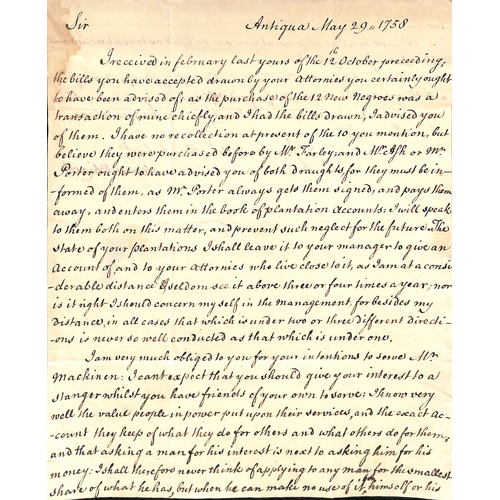 Sir Antigua May 29 1758
I received in february last yours of the 12th October preceeding,
the bills you have accepted drawn by your Attornies you certainly ought
to have been advised of: as the purchase of the 12 New Negroes was a
transaction of mine chiefly, and I had the bills drawn, I advised you
of them. I have no recollection at present of the 10 you mention, but
believe they were purchased before by Mr. Farley, and Mr. or Mr.
Porter ought to have advised you of both draughts, for they must be in-
formed of them, as Mr. Porter always gets them signed, and pays them
away, and enters them in the book of plantation Accounts: I will speak
to them both on this matter, and prevent such neglect for the future. The
state of your plantations I shall leave it to your manager to give an
Account of, and to your Attornies who live close to it, as I am at a consi-
-derable distance & seldom see it above three or four times a year; nor
is it right I should concern my self in the management, for besides my
distance, in all cases that which is under two or three different directi-
-ons is never so well conducted as that which is under one.
I am very much obliged to you for your intentions to serve Mr.
Mackinen: I cant expect that you should give your interest to a
stanger whilst you have friends of your own to serve: I know very
well the value people in power put upon their services, and the exact ac-
-count they keep of what they do for others and what others do for them,
and that asking a man for his interest is next to asking him for his
money: I shall therefore never think of applying to any man for the smallest
share of what he has, but when he can make no use of it himself or his